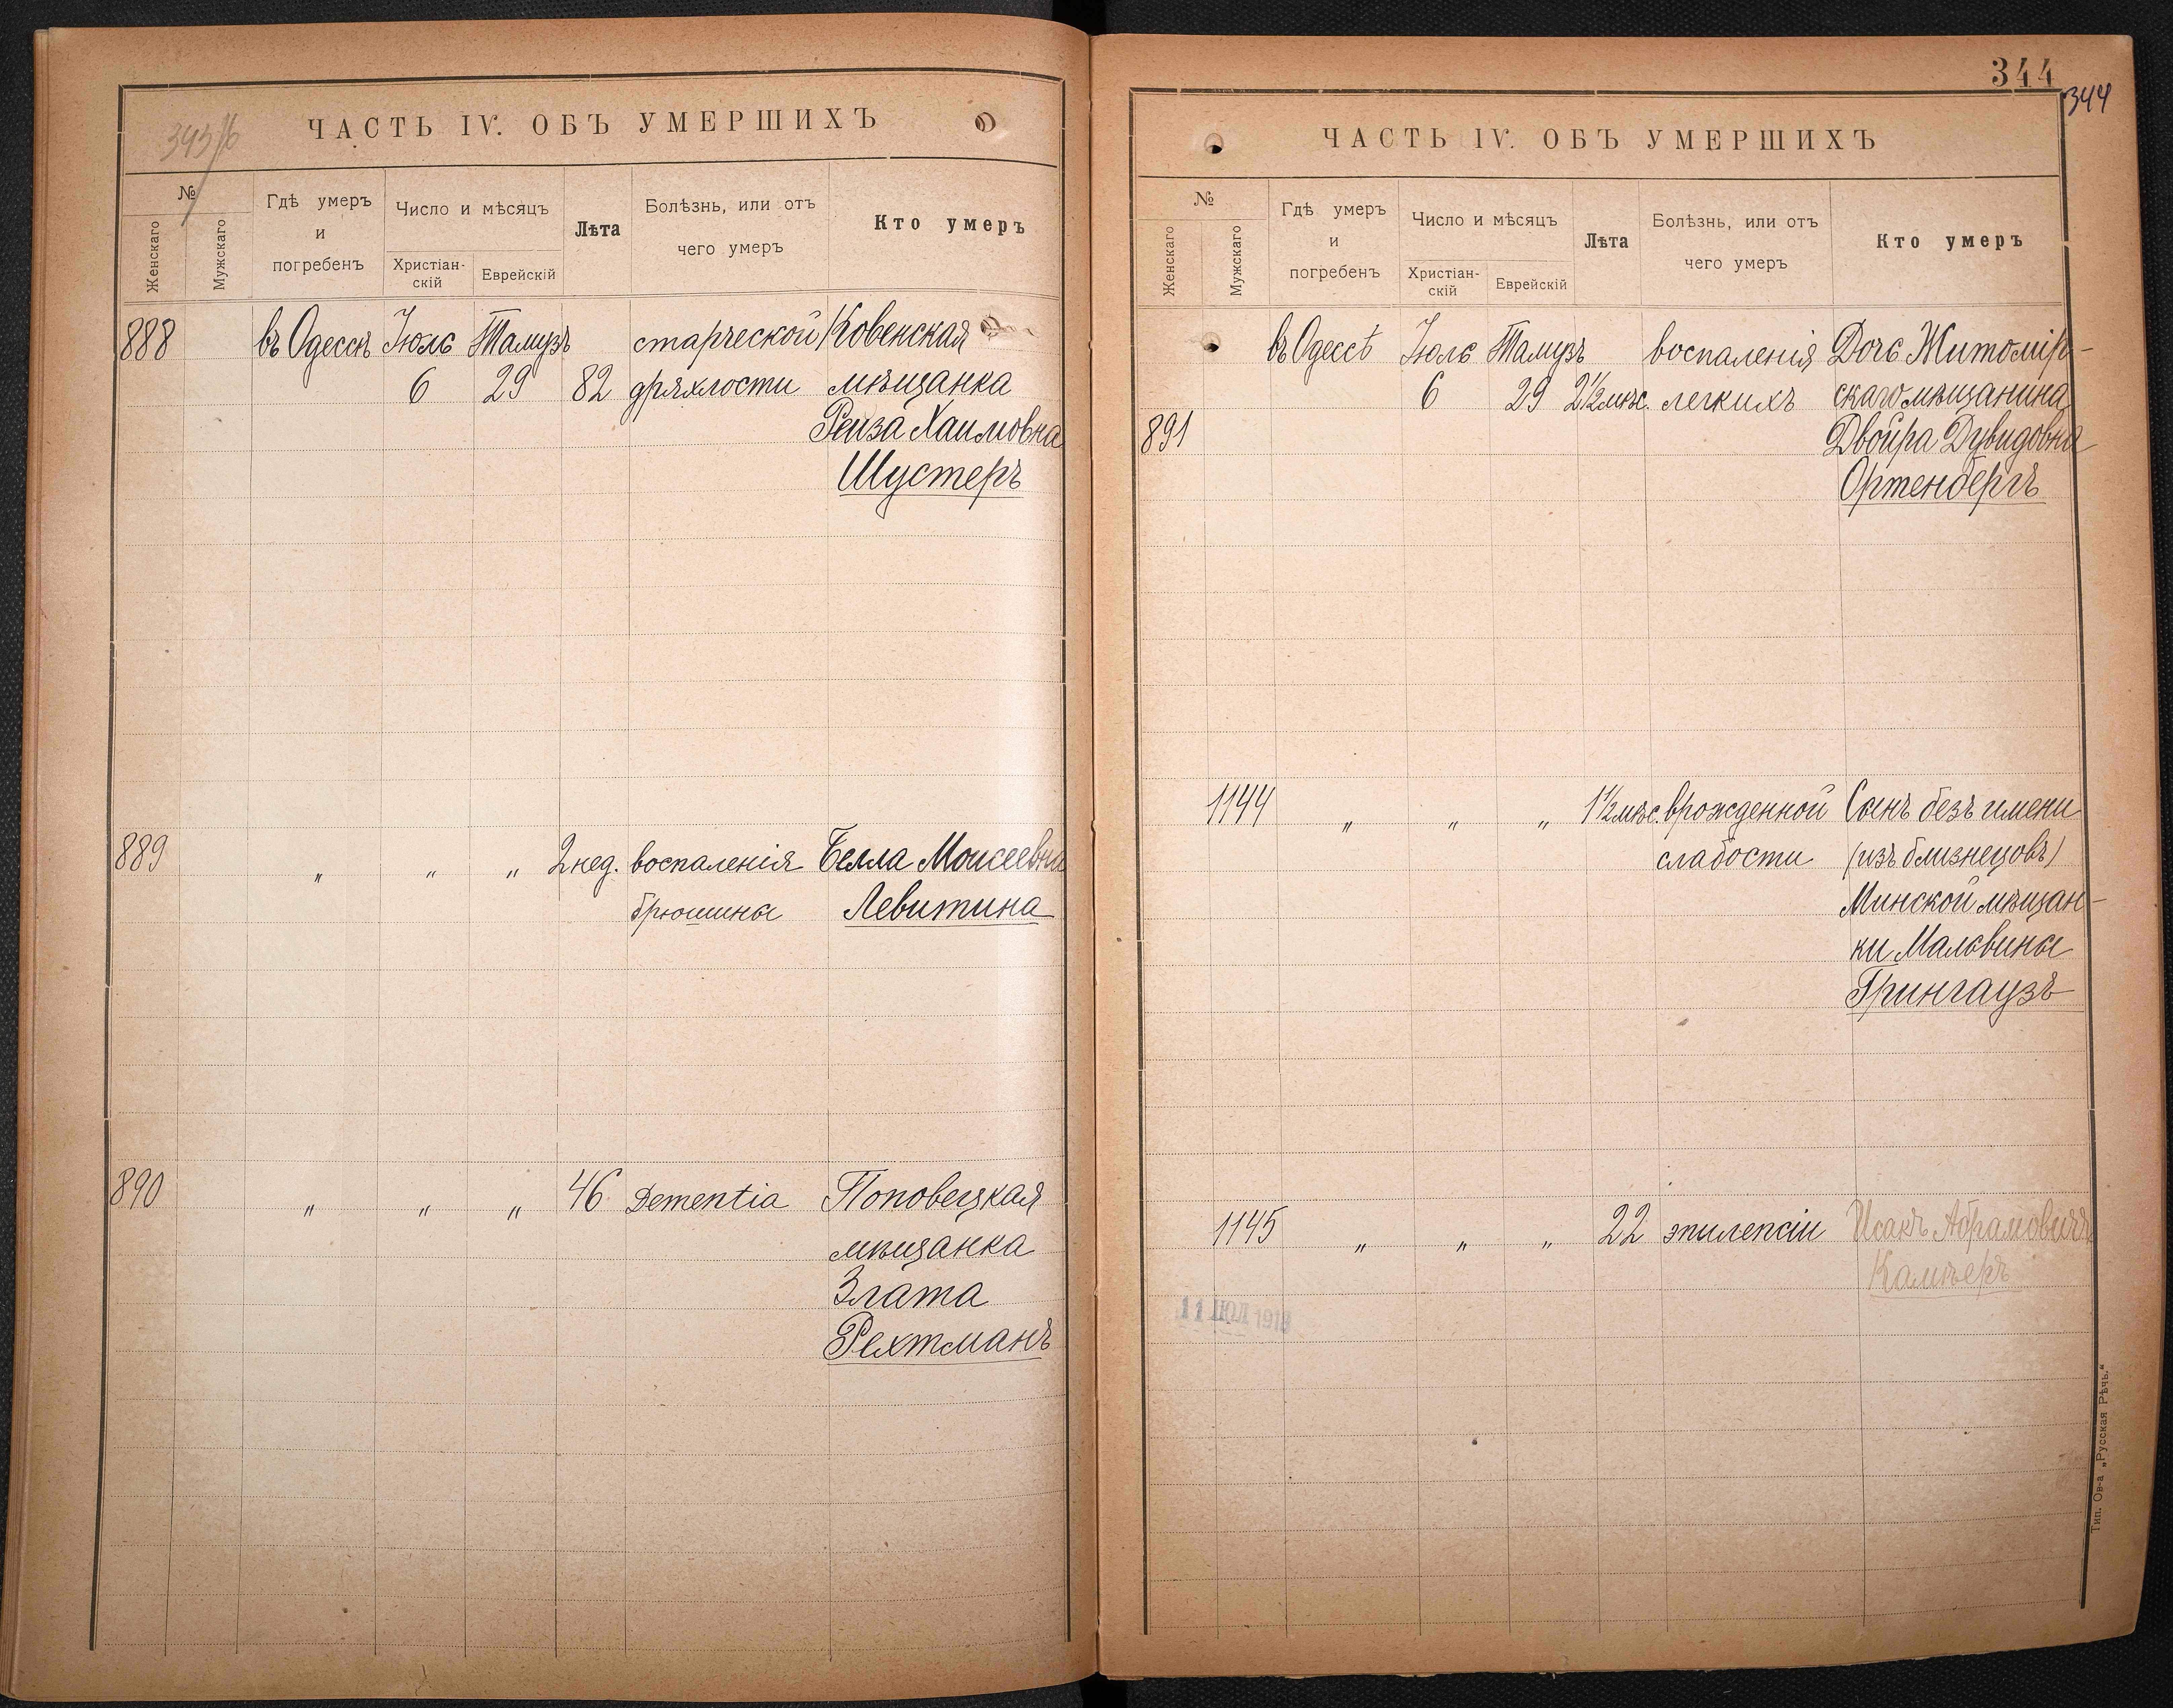 ЧАСТЬ IV. ОБЪ УМЕРШИХЪ
№
Женскаго
Мужскаго
Гдѣ умеръ
и
погребенъ
Число и мѣсяцъ
Христіан-
скій
Еврейскій
Лѣта
Болѣзнь, или отъ
чего умеръ
Кто умеръ
888 въ Одессѣ Іюль Тамузъ старческой Ковенская
6 29 82 дряхлости мѣщанка
Рейза Хаимовна
Шустеръ
889 „ „ „ 2 нед. воспаленія Белла Моисеевна
брюшины Левитина
890 „ „ „ 46 Dementia Поповецкая
мѣщанка
Злата
Рехтманъ
344
344
ЧАСТЬ IV. ОБЪ УМЕРШИХЪ
№
Женскаго
Мужскаго
Гдѣ умеръ
и
погребенъ
Число и мѣсяцъ
Христіан-
скій
Еврейскій
Лѣта
Болѣзнь, или отъ
чего умеръ
Кто умеръ
въ Одессѣ Іюль Тамузъ воспаленія Дочь Житомір-
6 29 2½ мѣс. легкихъ скаго мѣщанина
891 Двойра Дувидовна
Ортенбергъ
1144 „ „ „ 1½ мѣс. врожденной Сынъ безъ имени
слабости (изъ близнецовъ)
Минской мѣщан-
ки Мальвины
Грингаузъ
1145 „ „ „ 22 эпилепсіи Исакъ Абрамовичъ
11 ІЮЛ
Тип. Ов-а „Русская Рѣчь.“